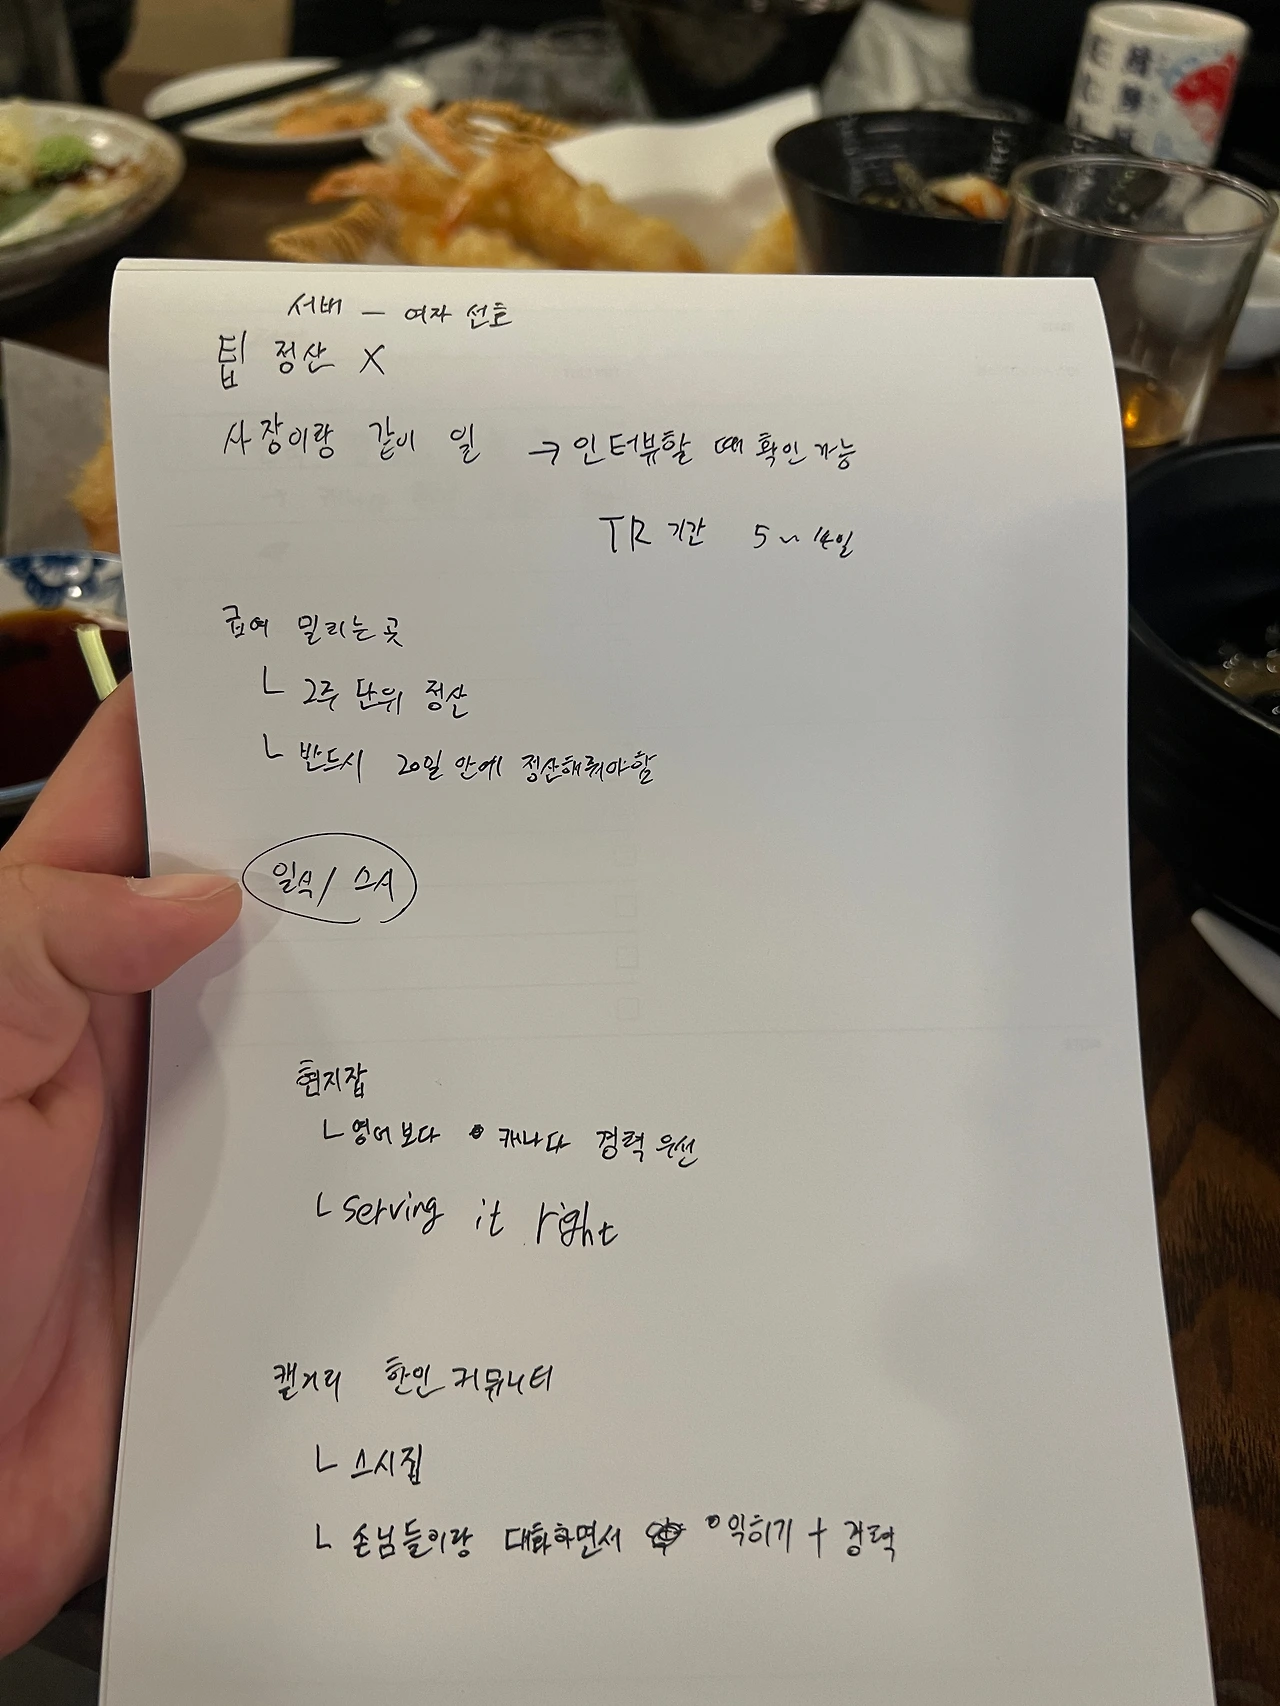 서버 — 여자 선호
팁 정산 X
사장이랑 같이 일 → 인터뷰할 때 확인 가능
TR 기간 5~14일
급여 밀리는 곳
ㄴ 2주 단위 정산
ㄴ 반드시 20일 안에 정산해줘야함
일식 / 스시
현지잡
ㄴ 영어보다 캐나다 경력 우선
ㄴ serving it right
캘거리 한인 커뮤니티
ㄴ 스시집
ㄴ 손님들이랑 대화하면서 익히기 + 경력